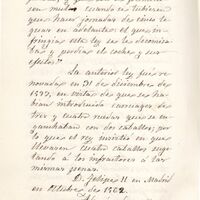 son mulas cuando se tubieren
que hacer jornadas de cinco le-
guas en adelante: el que in-
fringia esta ley se le decomisa-
ban y perdia el coche y sus
efectos."
La anterior ley fué re-
novada en 31 de diciembre de
1593, en vista de que se ha-
bian introducido carruages de
tres y cuatro ruedas que se en-
ganchaban con dos caballos; por
lo que el rey insistió en que
llevasen cuatro caballos suge-
tando á los infractores á las
mismas penas.
D. Felipe II en Madrid
en Octubre de 1582.